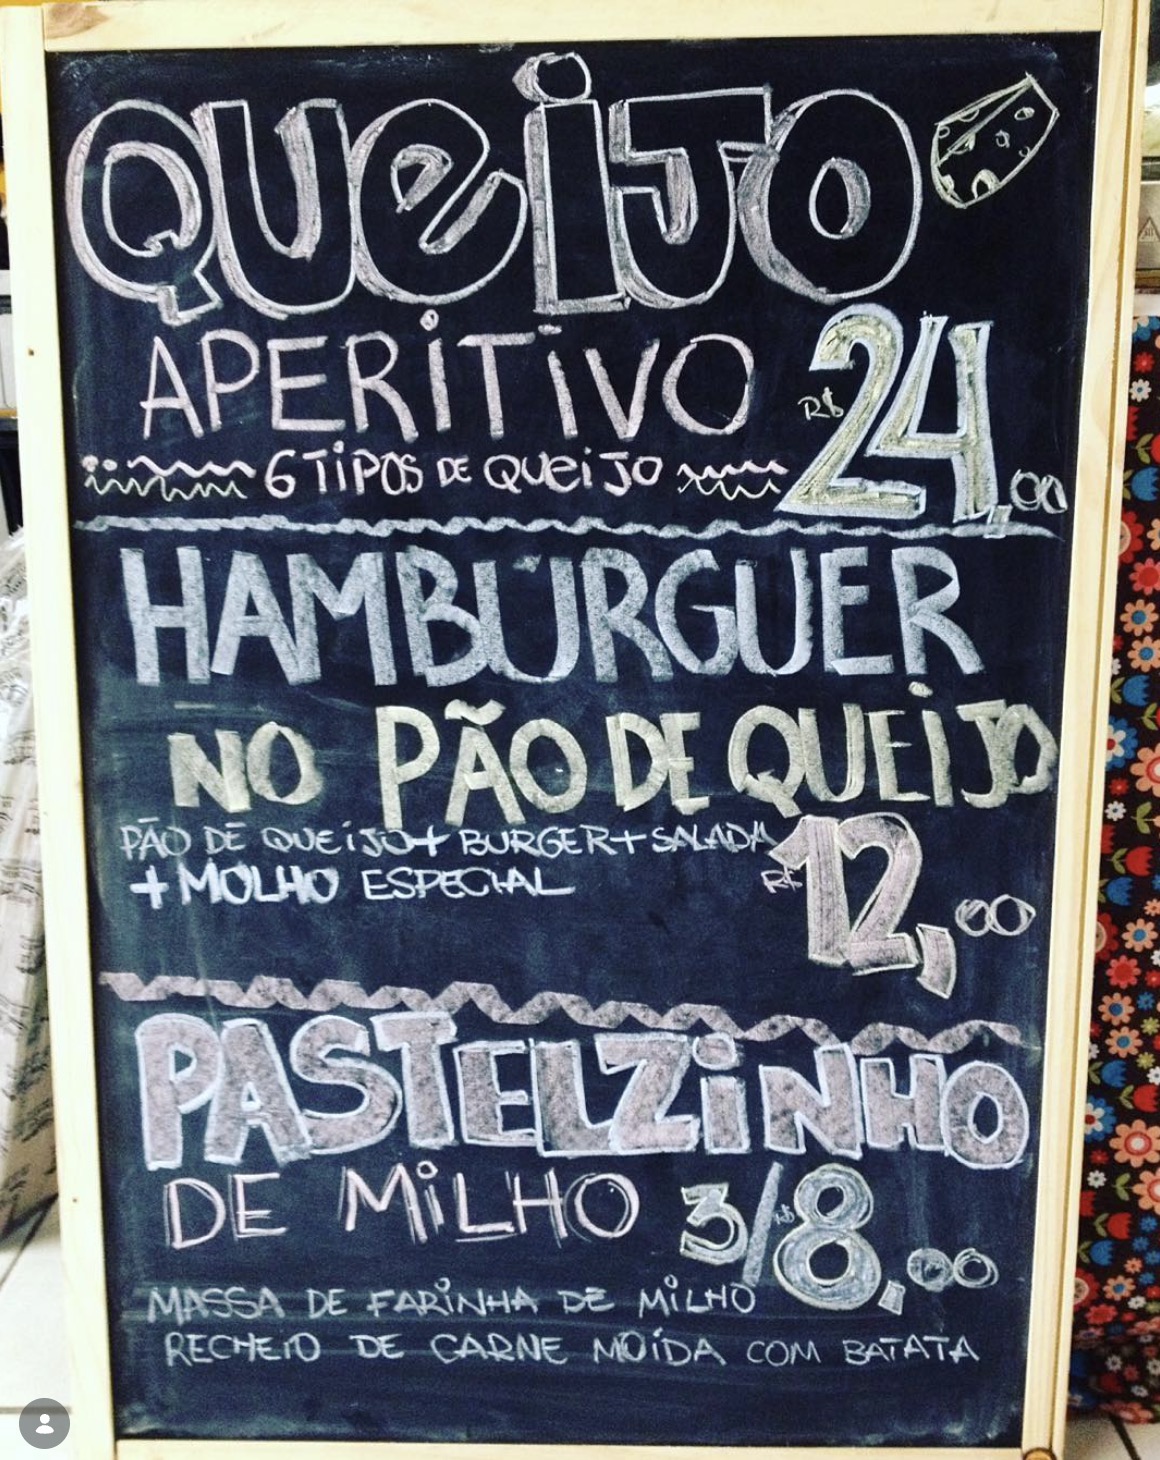 QUeiJO
APERiTiVO R$24,00
6 TiPOS DE QUeiJO
HAMBURGUER
NO PÃO DE QUEiJO
PÃO DE QUEiJO + BURGER + SALADA
+ MOLHO ESPECIAL R$12,00
PASTELZiNHO
DE MiLHO 3/R$8,00
MASSA DE FARiNHA DE MiLHO
RECHEIO DE CARNE MOÍDA COM BATATA